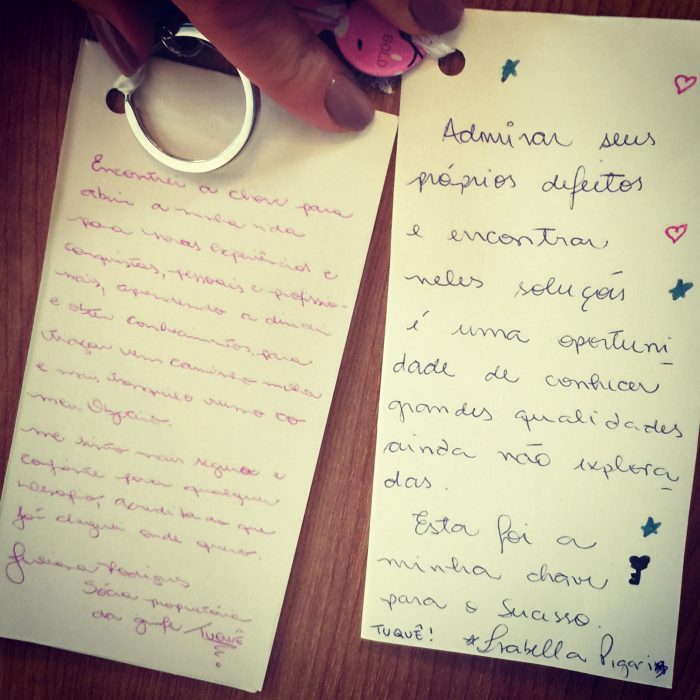 Encontrei a chave para
abrir a minha vida
para novas experiências e
conquistas, pessoais e profissio-
nais, aprendendo a
e obter conhecimentos para
traçar um caminho
e mais tranquilo rumo ao
meu
me sinto mais segura e
confiante para qualquer
desafio, acreditando que
já cheguei onde quero.
Sócia proprietária
da grife TUQUÊ
?
GOLD
Admirar seus
próprios defeitos
e encontrar
neles soluçõs
é uma oportuni_
dade de conhecer
grandes qualidades
ainda não explora_
das.
Esta foi a
minha chave
para o sucasso.
TUQUÊ! Isabella Pigari